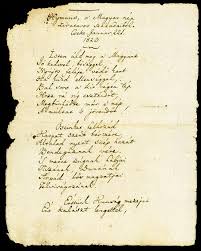 Hymnus, a' Magyar nép
zivataros századaiból.
Cseke, Januar. 22d.
1823.
Isten áldd meg a' Magyart
Jó kedvvel, bőséggel,
Nyújts feléje védő kart,
Ha küzd ellenséggel;
Bal sors a'kit régen tép,
Hozz rá víg esztendőt,
Megbűnhődte már e' nép
A' múltat 's jövendőt.
Őseinket felhozád
Kárpát szent bérczére,
Általad nyert szép hazát
Bendegúznak vére.
'S merre zúgnak habjai
Tiszának Dunának,
Árpád hős magzatjai
Felvirágozának.
Értünk Kunság mezein
Ért kalászt lengettél,